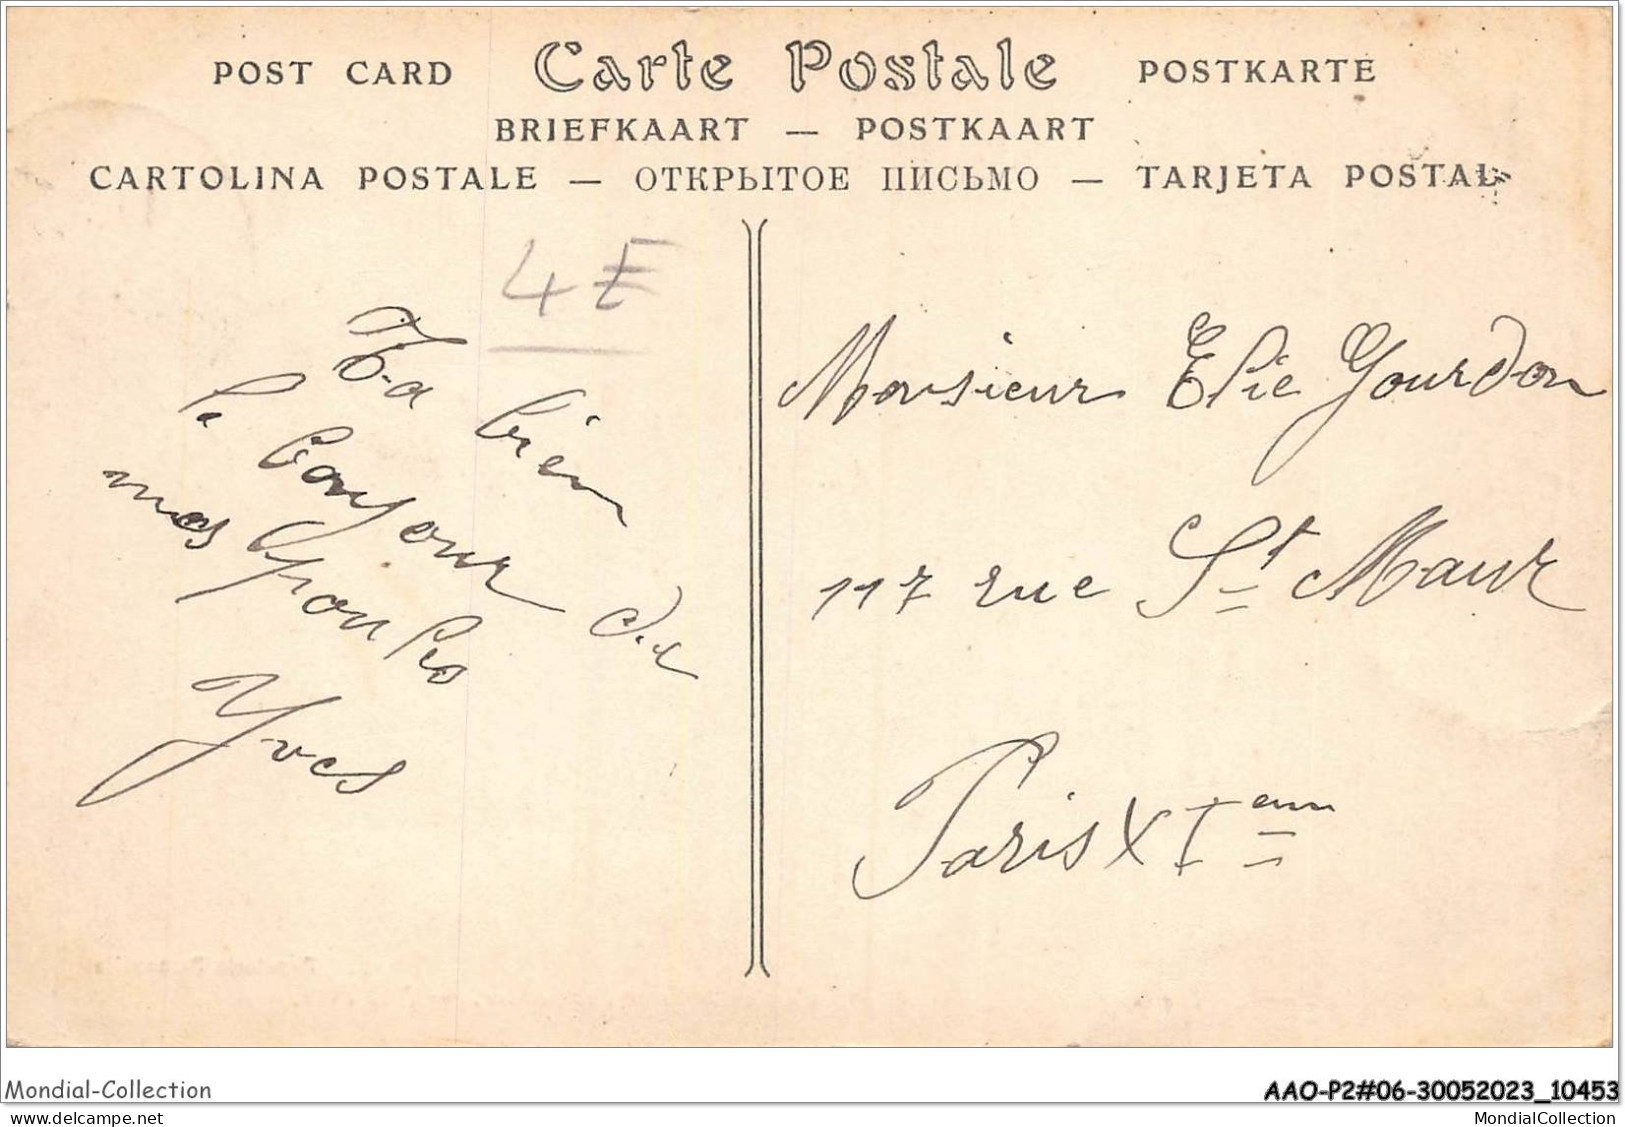 POST CARD Carte Postale POSTKARTE
BRIEFKAART — POSTKAART
CARTOLINA POSTALE — ОТКРЫТОЕ ПИСЬМО — TARJETA POSTAL
4 E
bien
le bonjour de
mes
Yves
Monsieur Elie Gourdon
117 rue St Maur
Paris XIem
Mondial-Collection
AAO-P2#06-30052023_10453
MondialCollection